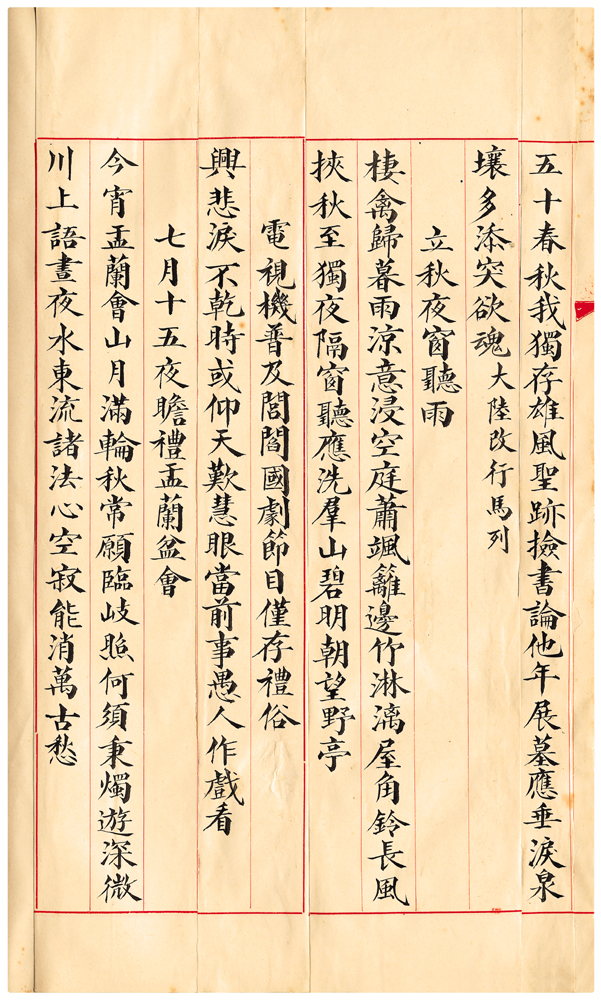 五十春秋我獨存雄風聖跡撿書論他年展墓應垂淚泉
壤多添突欲魂大陸改行馬列
立秋夜窗聽雨
棲禽歸暮雨涼意浸空庭蕭颯籬邊竹淋漓屋角鈴長風
挾秋至獨夜隔窗聽應洗羣山碧明朝望野亭
電視機普及閭閻國劇節目僅存禮俗
興悲淚不乾時或仰天歎慧眼當前事愚人作戲看
七月十五夜瞻禮盂蘭盆會
今宵盂蘭會山月滿輪秋常願臨岐照何須秉燭遊深微
川上語晝夜水東流諸法心空寂能消萬古愁